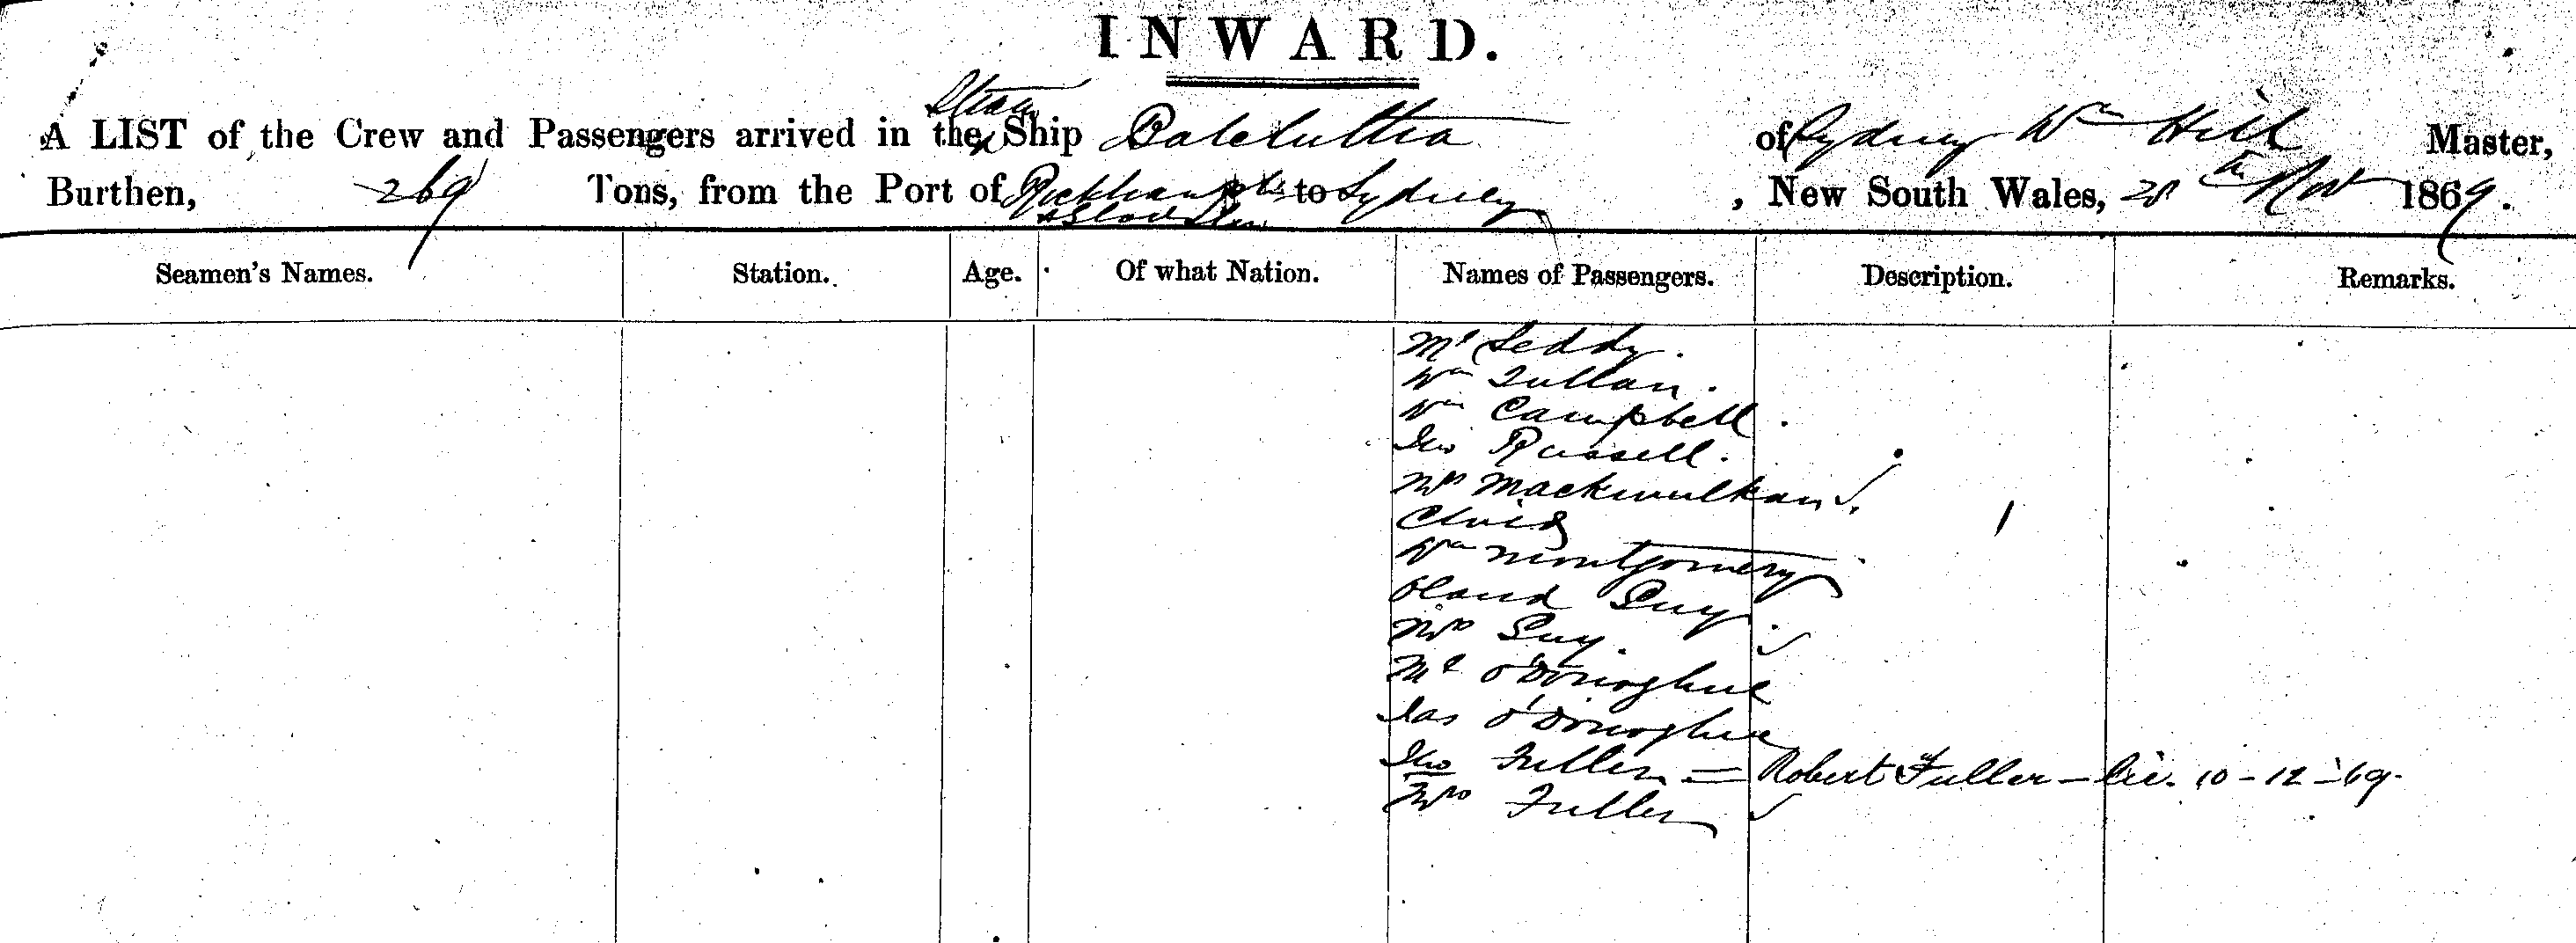 INWARD.
Steam
A LIST of the Crew and Passengers arrived in the Ship Balclutha of Sydney Wm Hill Master,
Burthen, 269 Tons, from the Port of Rockhampton to Sydney, New South Wales, 28th Nov 1869.
& Gladstone
Seamen's Names. Station. Age. Of what Nation. Names of Passengers. Description. Remarks.
Mr Leddy.
Wm
Wm Campbell.
Jno Russell.
Mrs
Child
Wm Montgomery
Guy
Mrs Guy.
Mr O'Donoghue
Jas O'Donoghue
Jno Fuller = Robert Fuller - lic. 10-12-69.
Mrs Fuller